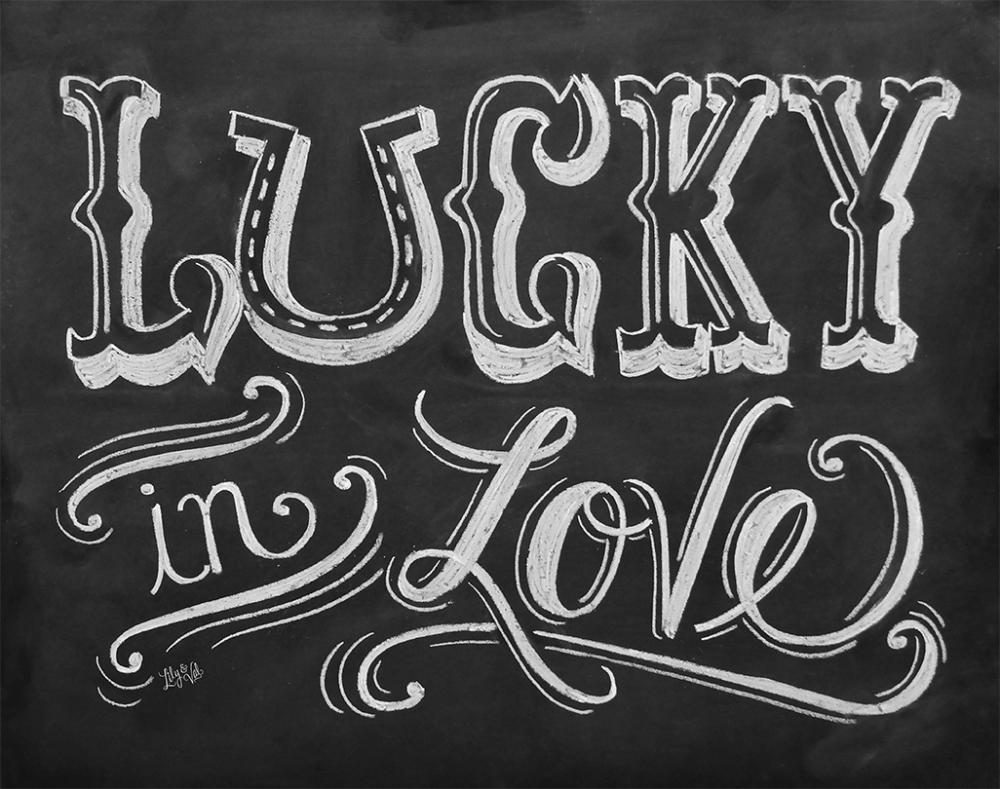 LUCKY
in Love
Lily & Val